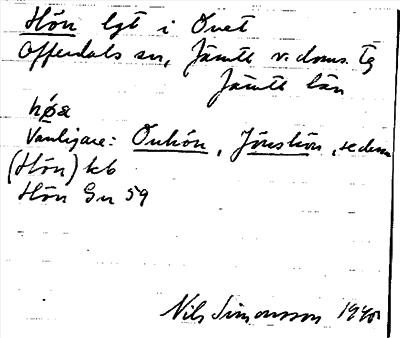 Hön lgt i Ovet
Offerdals sn, Jämtl v. doms. tg
Jämtl län
høa
Vanligare: Onhön, Jönshön, se dem
(Hön) kb
Hön Gn 59
Nils Simonsson 1940